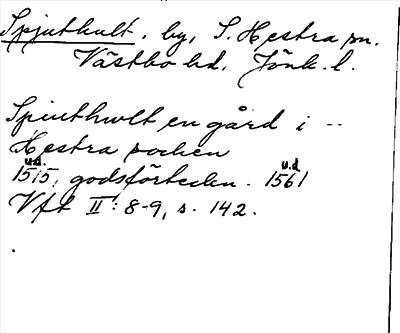 Spjuthult, by, S. Hestra sn.
Västbo hd, Jönk. l.
Spiuthwlt en gård i --
Hestra sochen
u.d. u.d
1515, godsförteckn. 1561
Vft II: 8-9, s. 142.